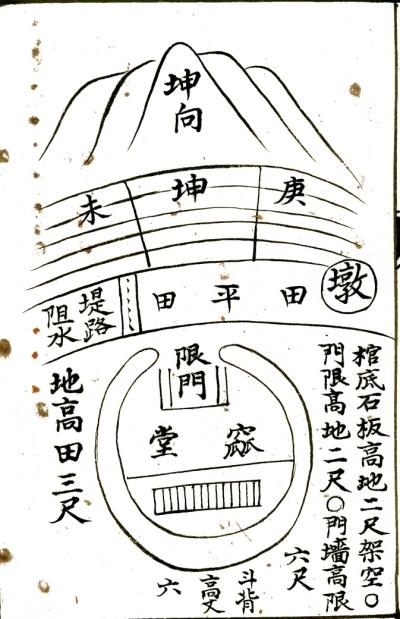 坤向
庚
坤
未
墩
田平田
堤路
阻水
限門
堂
棺底石板高地二尺架空〇
門限高地二尺〇門墻高限
六尺
斗背
高丈
六
地高田三尺